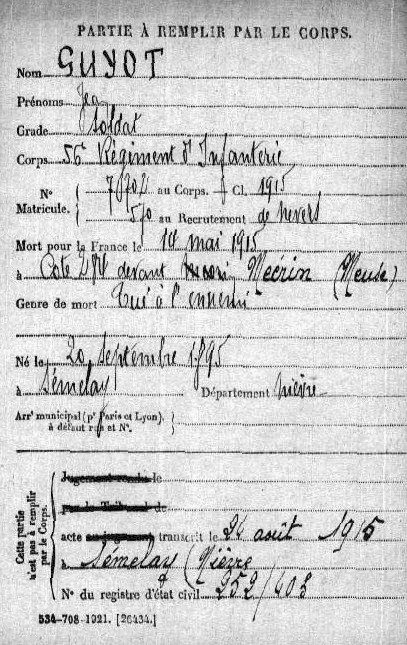 PARTIE À REMPLIR PAR LE CORPS.
Nom GUYOT
Prénoms Jean
Grade Soldat
Corps 56 Régiment d'Infanterie
N° Matricule.
7802 au Corps. Cl. 1915
570 au Recrutement de nevers
Mort pour la France le 14 mai 1915
à Cote devant Mécrin (Meuse)
Genre de mort Tué à l'ennemi
Né le 20 Septembre 1895
à Sémelay Département nièvre
Arr' municipal (p' Paris et Lyon),
à défaut rue et N°.
Cette partie
n'est pas à remplir
par le Corps.
Jugement rendu le
par le Tribunal de
acte ou jugement transcrit le 24 août 1915
à Sémelay (Nièvre
N° du registre d'état civil 252/403
534-708-1921. [26434.]